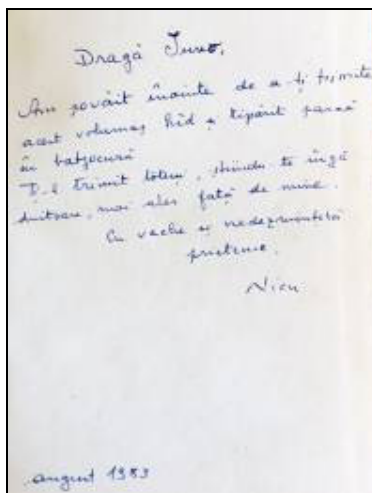 Dragă Juno,
Am șovăit înainte de a-ți trimite
acest volumaș hîd și tipărit parcă
în batjocură
Ți-l trimit totuși, știindu-te îngă
duitoare, mai ales față de mine.
Cu veche și nedezmințită
prietenie.
Nicu
august 1983